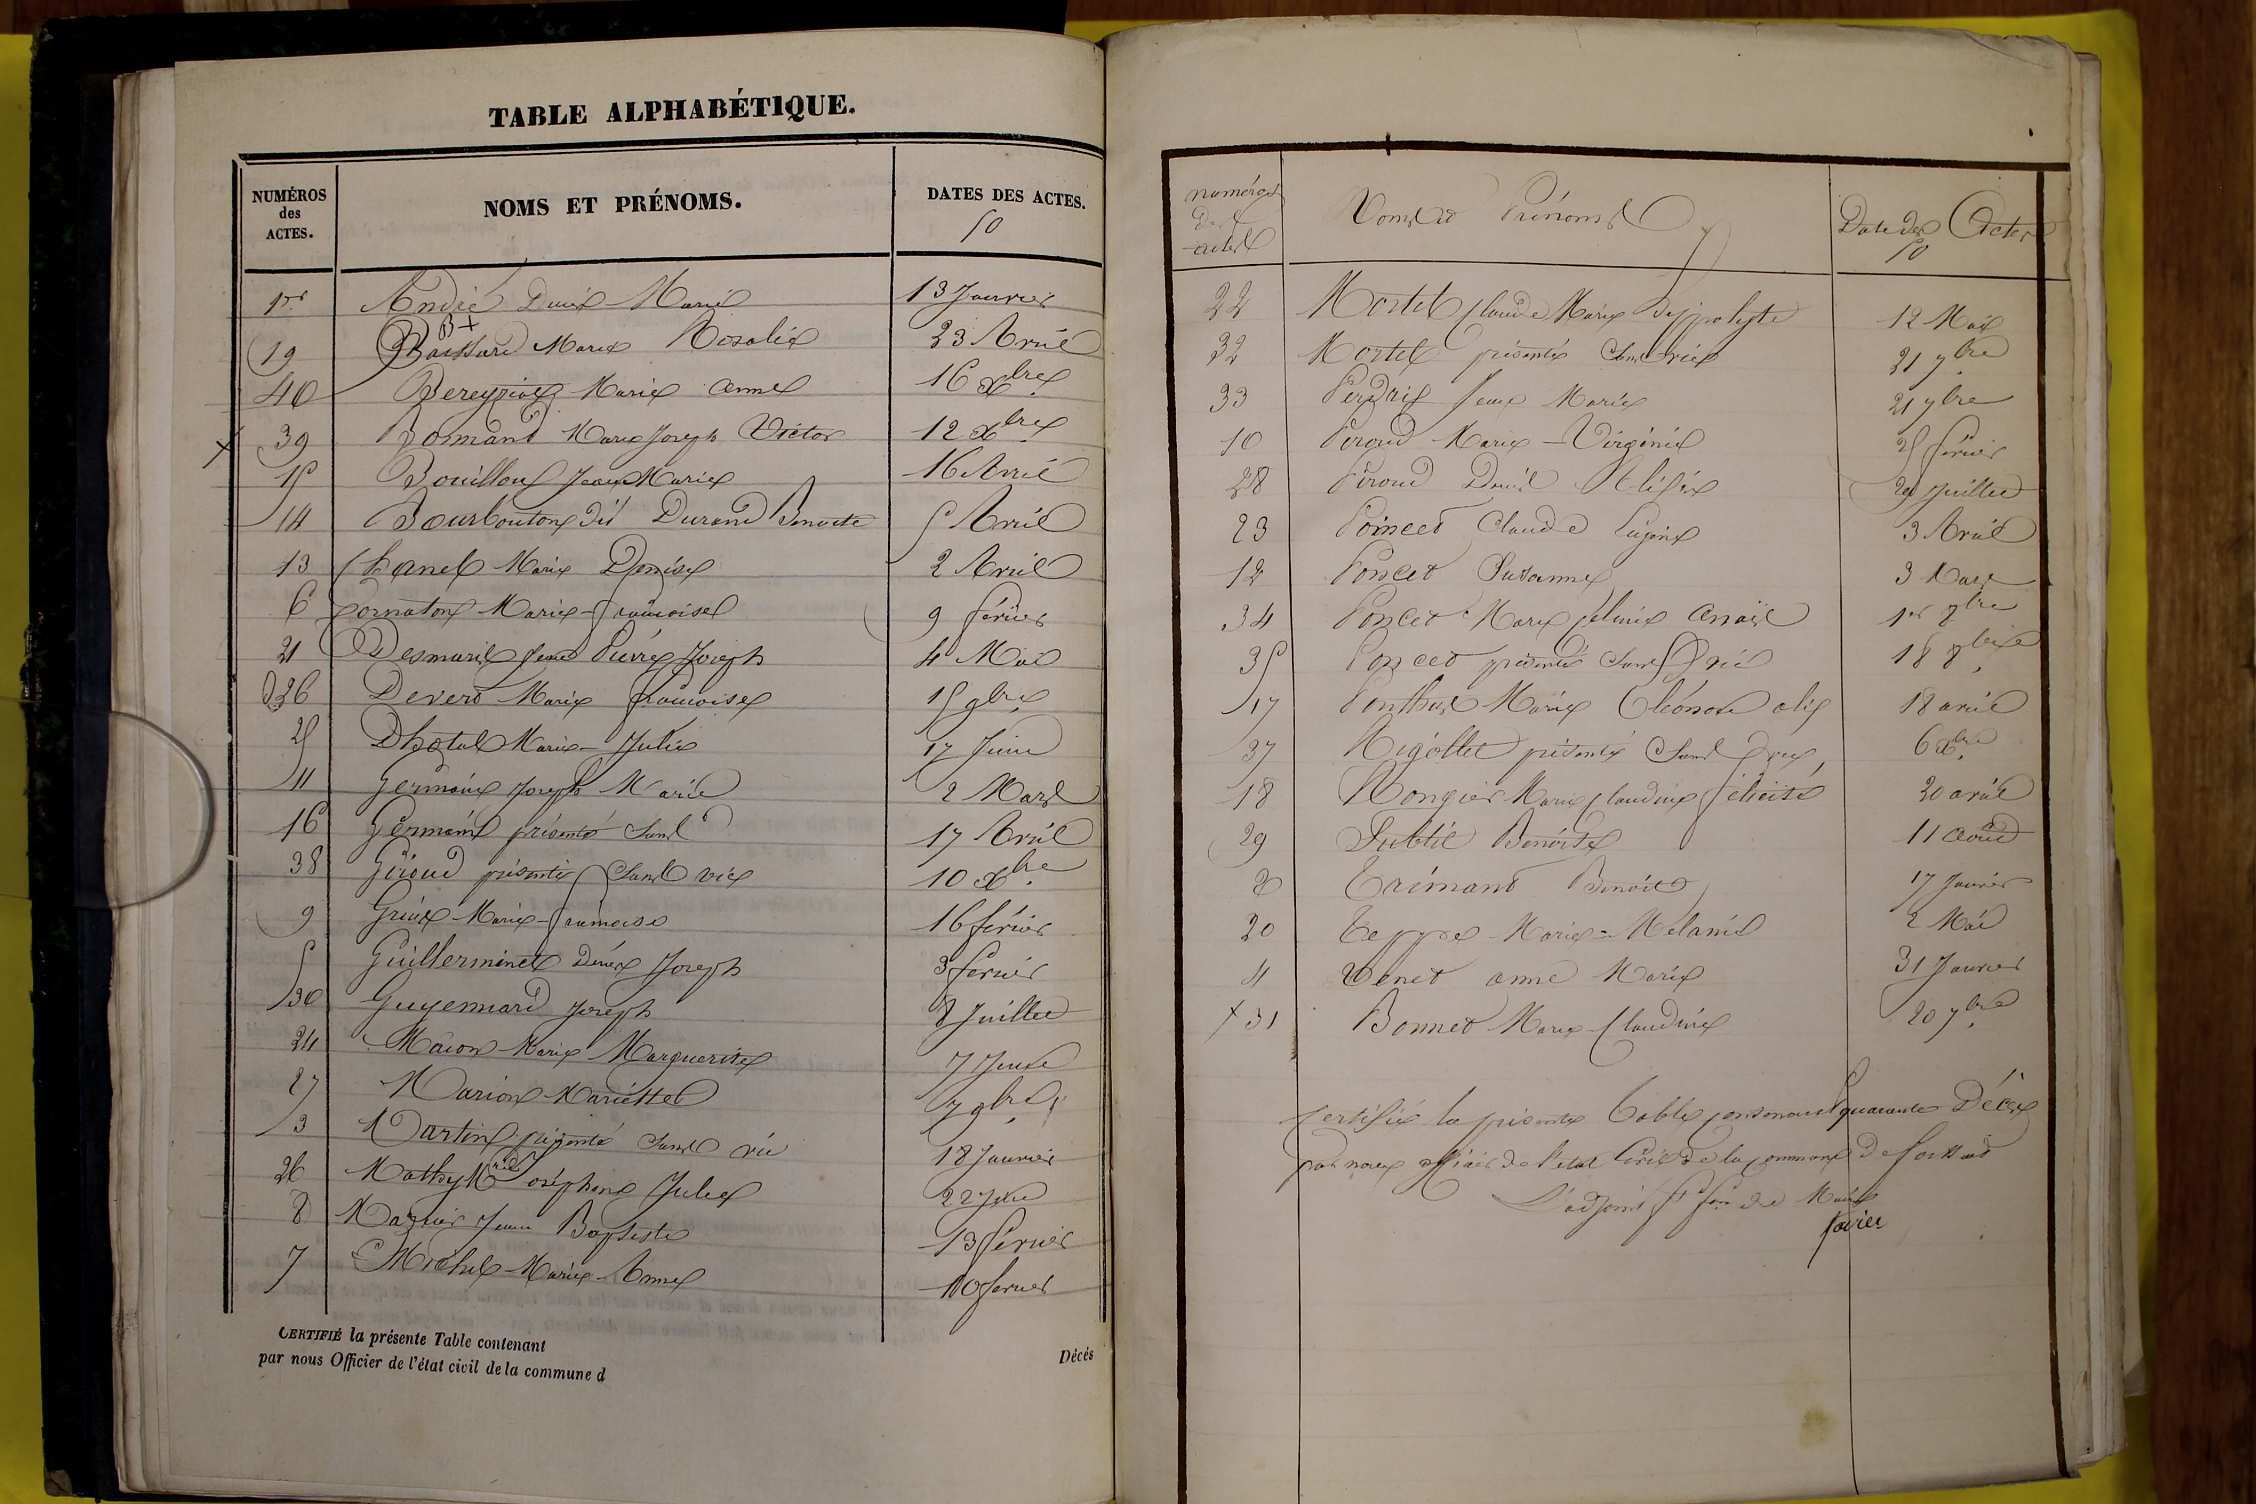 TABLE ALPHABÉTIQUE.
NUMÉROS des ACTES. NOMS ET PRÉNOMS. DATES DES ACTES.
50
1er André Marie 13 Janvier
19 Marie Rosalie 23 Avril
40 Marie anne 16 Xbre
39 Marie Joseph Victor 12 Xbre
15 Bouilloux Jean Marie 16 Avril
14 Bourbouton dit Durand Benoite 5 Avril
13 Chanel Marie Denise 2 Avril
6 Cornaton Marie-françoise 9 février
21 Desmaris Jean Pierre Joseph 4 Mai
36 Devers Marie françoise 15 9bre
25 Dhotal Marie-Julie 17 Juin
11 Germain Joseph Marie 2 Mars
16 Germain présenté sans 17 Avril
38 Giroud présenté Sans vie 10 Xbre
9 Marie-françoise 16 février
5 Guillerminet Joseph 3 février
30 Guyennard Joseph 8 Juillet
24 Maion Marie Marguerite 7 Juin
27 Marion Mariette 7
3 Martin présenté sans vie 18 Janvier
26 Mathy Josephine Julie 22
8 Jean Baptiste 13 février
7 Michel Marie-Anne 10 fevrier
CERTIFIÉ la présente Table contenant Décés
par nous Officier de l'état civil de la commune d
numéros Des actes Noms et Prénoms Date des Actes
50
22 Mortel Claude Marie hyppolyte 12 Mai
32 Mortel présenté Sans vie 21 7bre
33 Perdrix Jean Marie 21 7bre
10 Piroud Marie-Virginie 25 février
28 Piroud Juillet
23 Poincet Claude Eugène 3 Avril
12 Poncet Susanne 3 Mars
34 Poncet Marie 1er 8bre
35 Poncet présenté Sans vie 18 8bre
17 Ponthus Marie Cléonore 18 avril
37 Rigollet présenté Sans vie 6 Xbre
18 Rongier Marie Claudine félicité 20 avril
29 Subtil Benoite 11 août
2 Trémand Benoite 17 Janvier
20 Teppe Marie-Melanie 2 Mai
4 Venet anne Marie 31 Janvier
+ 31 Bonnet Marie-Claudine 20 7bre
Certifié la présente Table contenant quarante Décès
par nous officier de l'état Civil de la commune de
L'adjoint de Maire